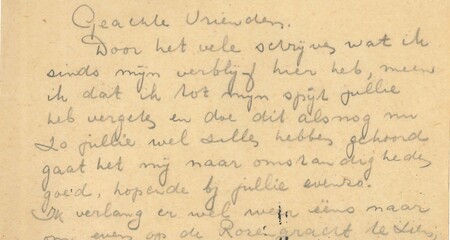 Geachte Vrienden.
Door het vele schrijven wat ik
sinds mijn verblijf hier heb, meen
ik dat ik tot mijn spijt jullie
heb vergeten en doe dit alsnog nu
Zo jullie wel zullen hebben gehoord
gaat het mij naar omstandigheden
goed, hopende bij jullie evenzo.
Ik verlang er wel weer ééns naar
om even op de Rozengracht te